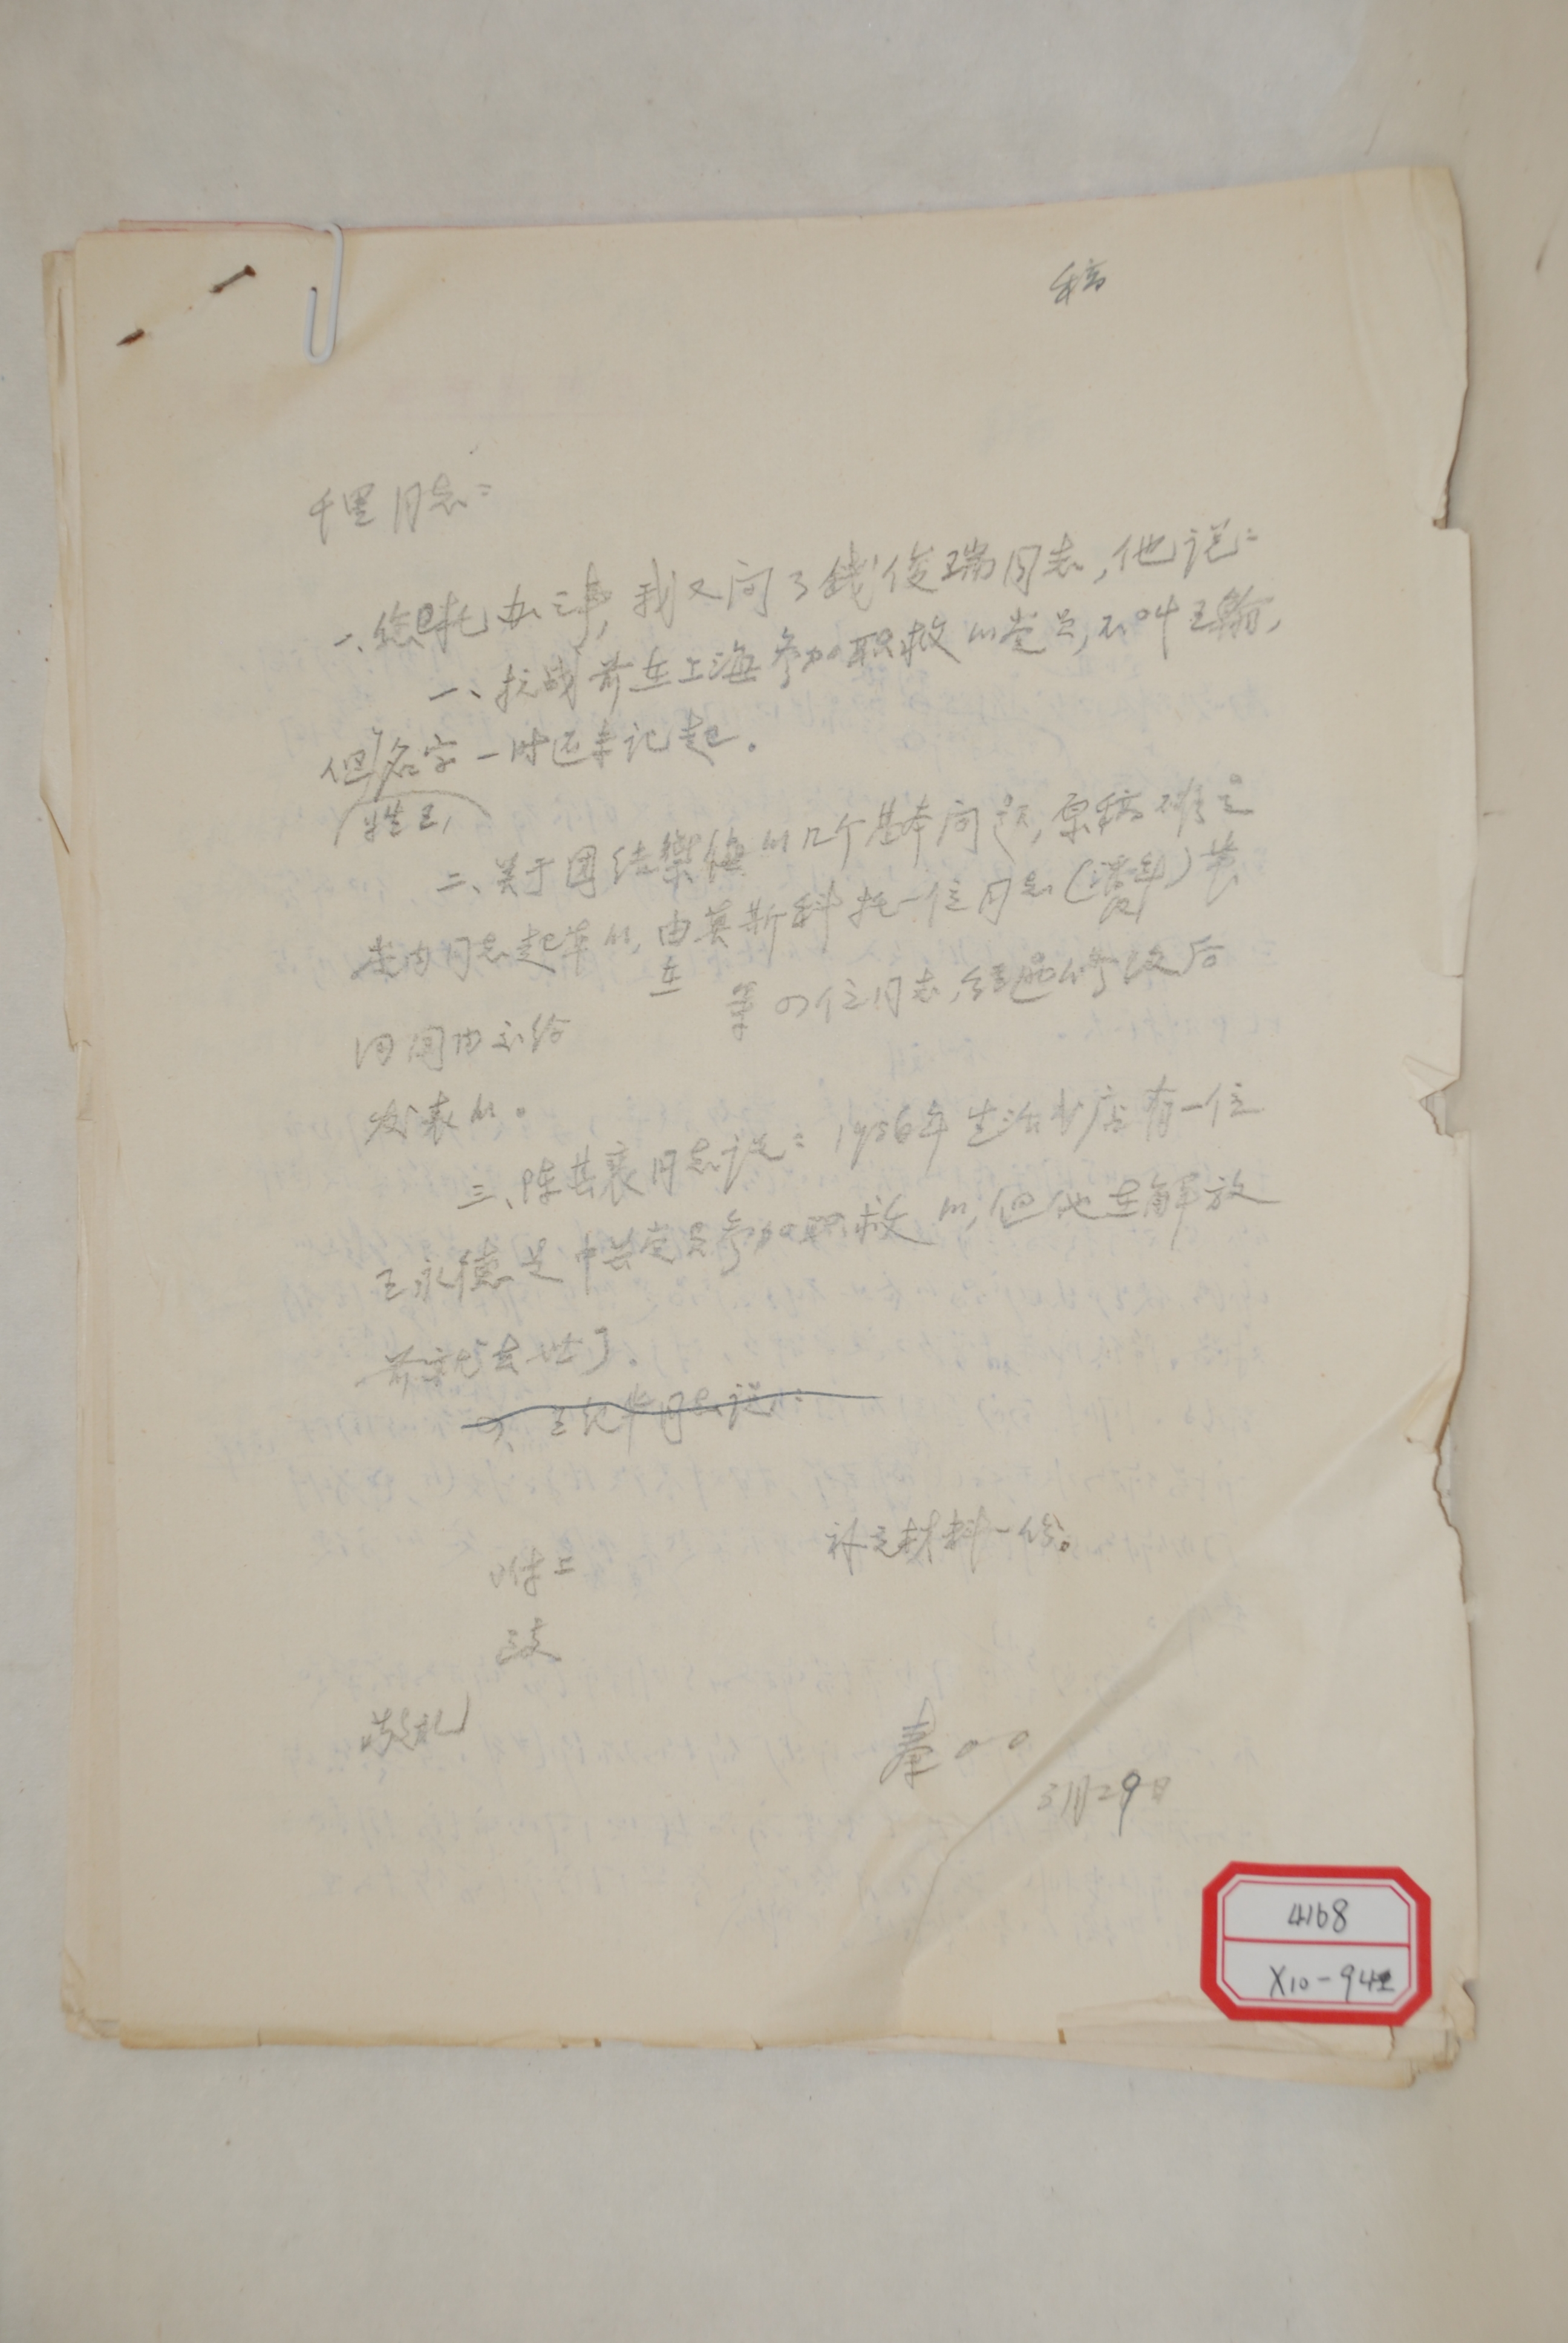 稿
千里同志：
一、您嘱托办之事，我又问了钱俊瑞同志，他说：
一、抗战前在上海参加职救的党员，不叫王翰，
但名字一时还未记起。
姓王，
二、关于团结御侮的几个基本问题，原稿确是
党内同志起草的，由莫斯科托一位同志（潘汉年）带
在
回国内交给 等四位同志，经过修改后
发表的。
三、陈其襄同志说：1936年生活书店有一位
王永德是中共党员参加职救的，但他在解放
前就去世了。
四、王纪华同志说：
附上 补充材料一份。
致
敬礼
3月29日
4168
X10-942